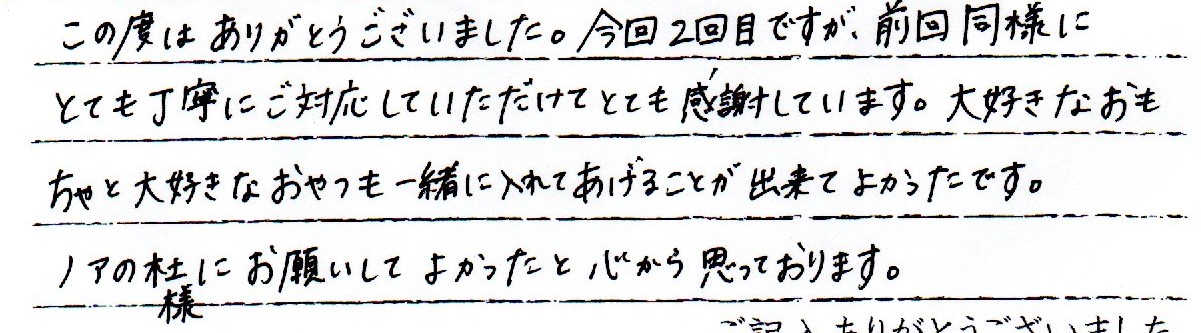 この度はありがとうございました。今回2回目ですが、前回同様に
とても丁寧にご対応していただけてとても感謝しています。大好きなおも
ちゃと大好きなおやつも一緒に入れてあげることが出来てよかったです。
ノアの杜様にお願いしてよかったと心から思っております。
ご記入ありがとうございました